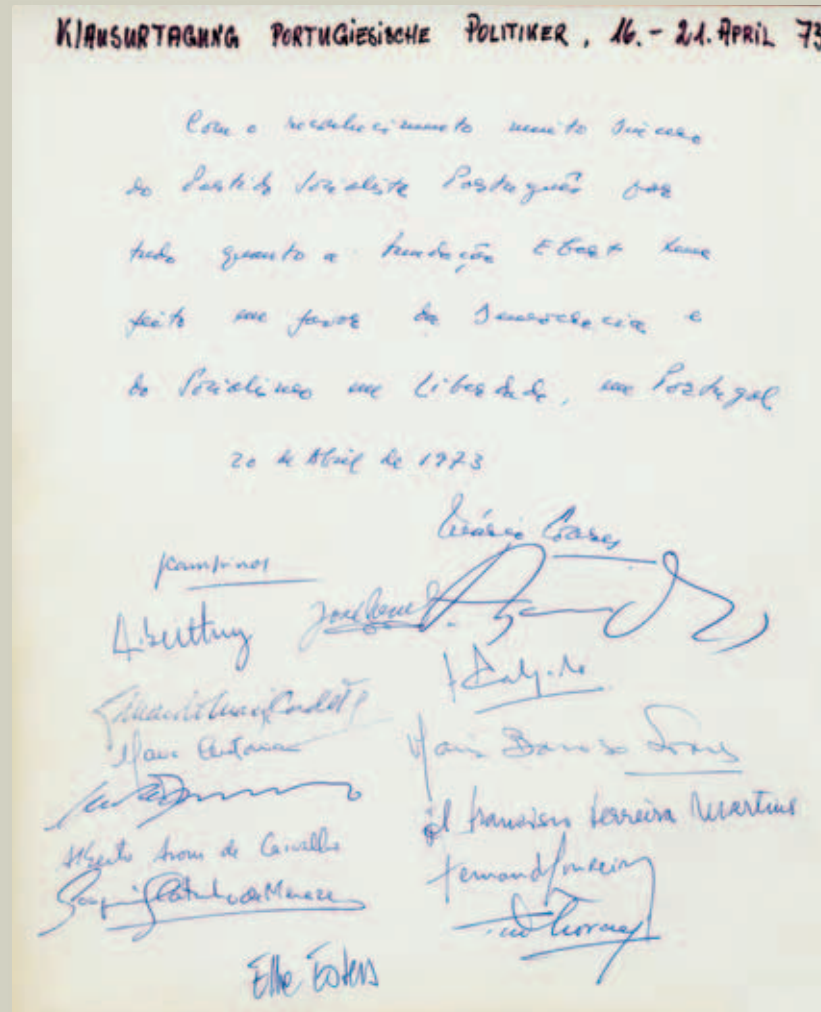 KLAUSURTAGUNG PORTUGIESISCHE POLITIKER, 16. - 21. APRIL 73
Com o reconhecimento muito sincero
do Partido Socialista Português por
tudo quanto a Fundação Ebert tem
feito em favor da Democracia e
do Socialismo em Liberdade, em Portugal
20 de Abril de 1973
Mário Soares
Maria Barroso Soares
Francisco Ferreira Martins
Alberto Arons de Carvalho
Fernando Loureiro
Joaquim Catanho de Menezes
Elke Esters